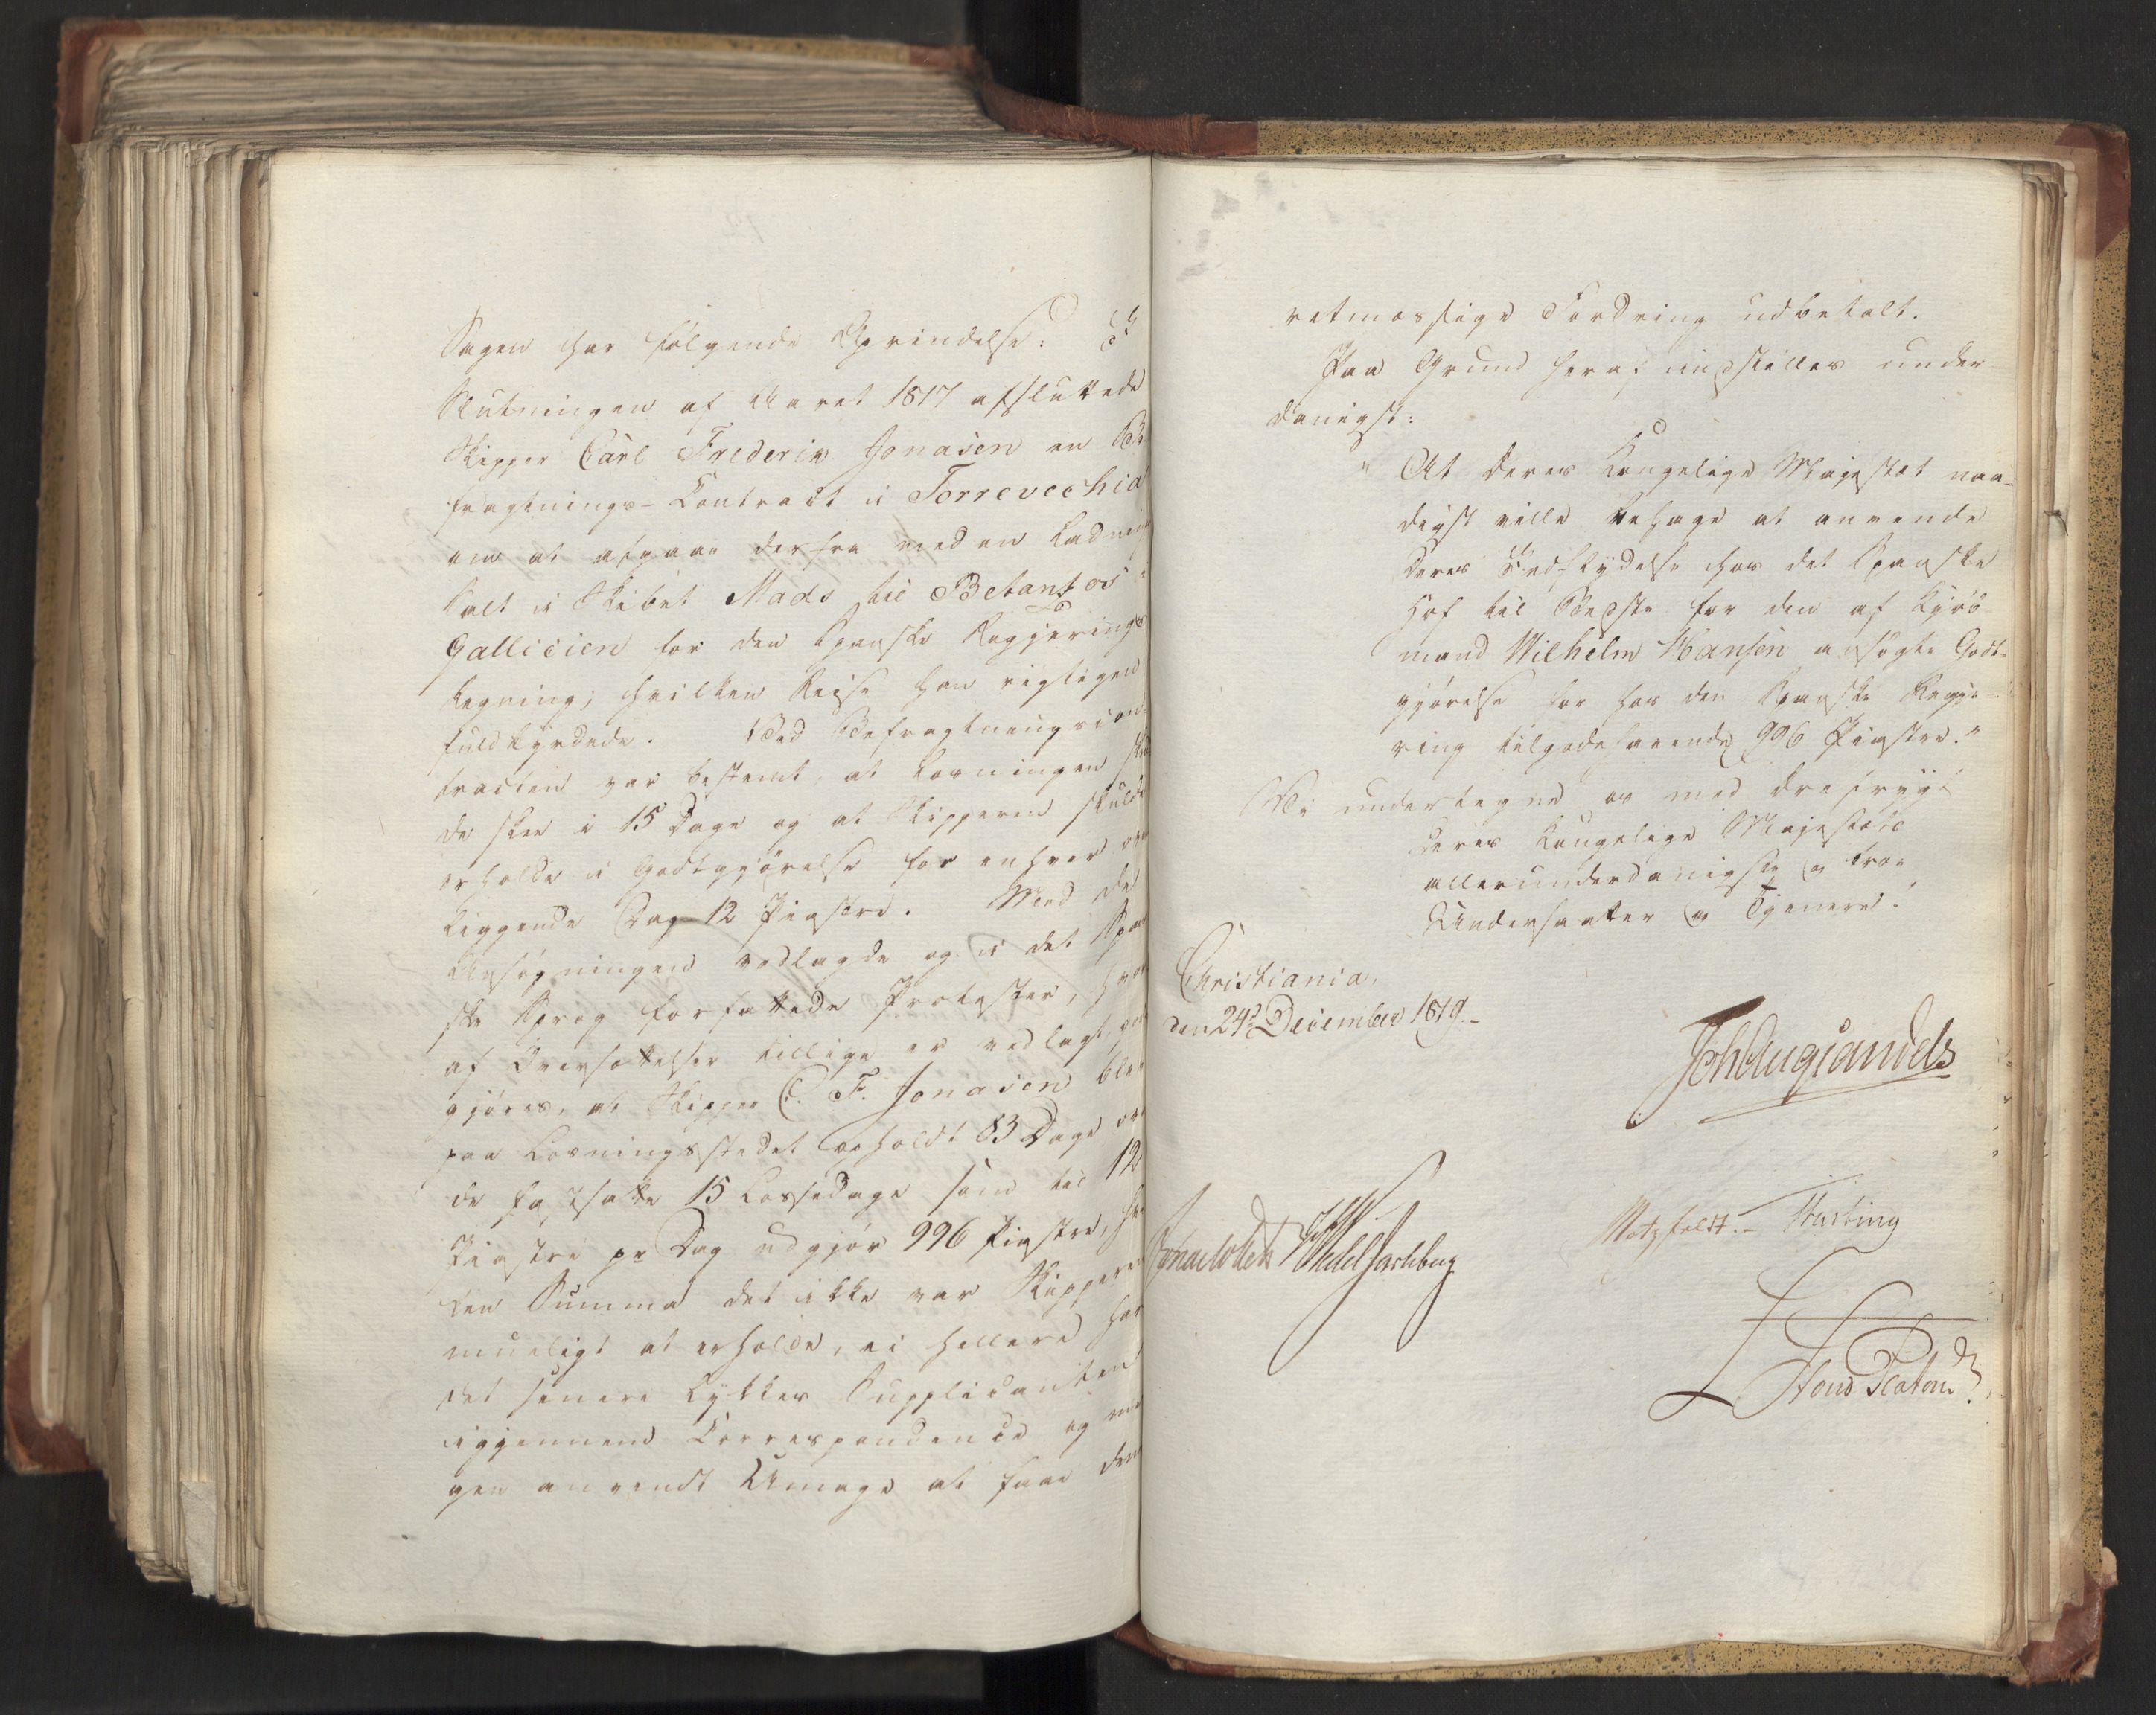 Sagen har følgende Oprindelse: I
Slutningen af Aaret 1817 afsluttede
Skipper Carl Frederik Jonasen en Be
fragtnings-Contract i Torrevechia
om at afgaae derfra med en Ladning
Salt i Skibet Mads til Betantos i
Gallicien for den Spanske Regjerings
Regning; hvilken Reise han rigtigen
fuldbyrdede. Ved Befragtningscon-
tracten var bestemt, at Losningen skul
de skee i 15 Dage og at Skipperen skulde
erholde i Godtgjørelse for enhver over
liggende Dag 12 Piastre. Med de
Ansøgningen vedlagde og i det Span
ske Sprog forfattede Protester, hvor
af Oversættelser tillige er vedlagt,
gjøres, at Skipper C. F. Jonasen blev
paa Losningsstedet opholdt 83 Dage over
de fastsatte 15 Lossedage som til 12
Piastre pr Dag udgjør 996 Piastre, hvil
ken Summa det ikke var Skipperen
mueligt at erholde, ei hellere har
det senere lykkes Supplicanten
igjennem Correspondence og me
gen anvendt Umage at faae den
retmæssige Fordring udbetalt.
Paa Grund heraf indstilles under
danigst:
"At Deres Kongelige Majestæt naa-
digst ville behage at anvende
Deres Indflydelse hos det Spanske
Hof til Bedste for den af Kjøb
mand Wilhelm Hansen ansøgte Godt-
gjørelse for hos den Spanske Regje-
ring tilgodehavende 996 Piastre."
Vi undertegne os med Ærefrygt
Deres Kongelige Majestæts
allerunderdanigste og troe
Undersaatter og Tjenere.
Christiania,
den 24de December 1819.-
Joh Aug Sandels
Motzfeldt.- Hasting
Jonas Collett HWedel Jarlsberg